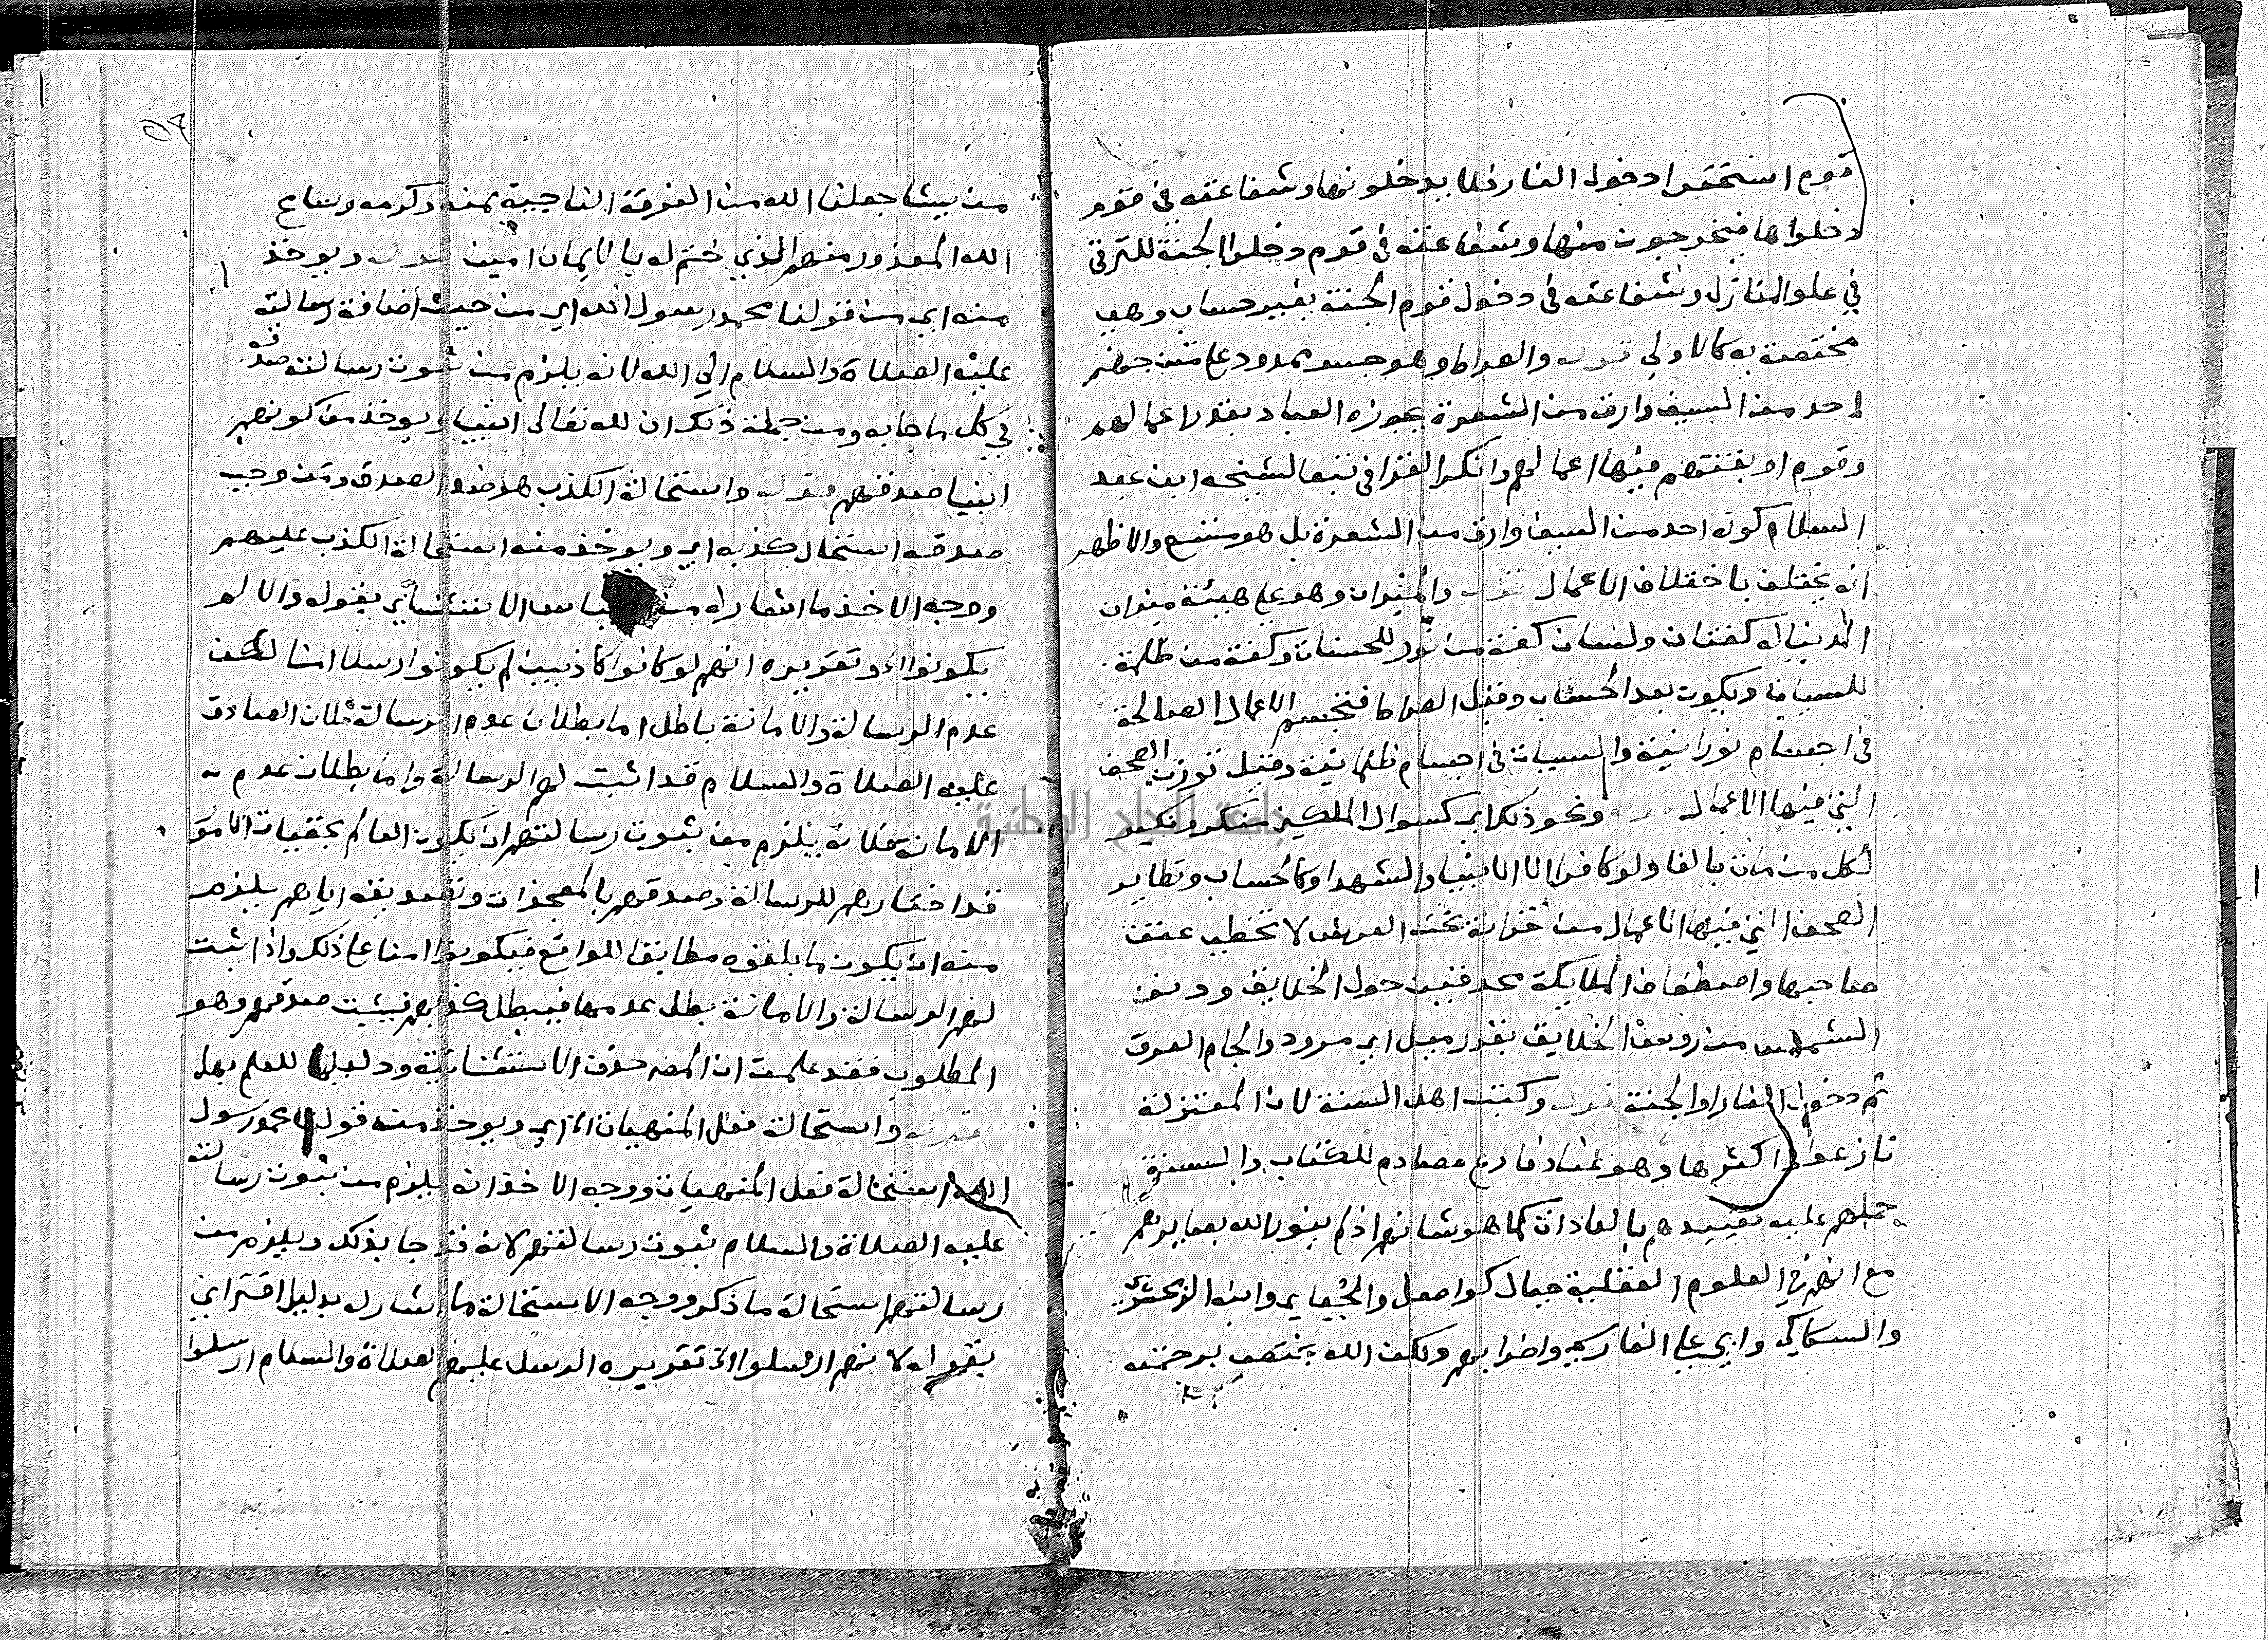 قوم استحقوا دخول النار فلا يدخلونها وشفاعته في قوم
دخلوها فيخرجون منها وشفاعته في قوم دخلوا الجنة للترقي
في علو المنازل وشفاعته في دخول قوم الجنة بغير حساب وهي
مختصة به كالاولي قوله والصراط وهو جسر ممدود على متن جهنم
احد من السيف وارق من الشعرة يجوزه العباد بقدر اعمالهم
وقوم او بقتهم فيها اعمالهم وانكر القرافي تبعا لشيخه ابن عبد
السلام كونه احد من السيف وارق من الشعرة بل هو متسع والاظهر
انه يختلف باختلاف الاعمال قوله والميزان وهو على هيئة ميزان
الدنيا له كفتان ولسان كفة من نور للحسنات وكفة من ظلمة
للسيات ويكون بعد الحساب وقبل الصراط فتجسم الاعمال الصالحة
في اجسام نورانية والسيات في اجسام ظلمانية وقيل توزن الصحف
التي فيها الاعمال قوله ونحو ذلك اي كسوال الملكين منكر ونكير
لكل من مات بالغا ولو كافرا الا الانبيا والشهدا وكالحساب وتطاير
الصحف التي فيها الاعمال من خزانة تحت العرش لا تخطي عنق
صاحبها واصطفاف الملايكة محدقين حول الخلايق ودنو
الشمس من روس الخلايق بقدر ميل اي مرود والجام العرق
ثم دخول النار او الجنة قوله وكتب اهل السنة لان المعتزلة
نازعوا في اكثرها وهو عناد فارغ مصادم للكتاب والسنة
حملهم عليه تقييدهم بالعادات كما هو شانهم اذ لم ينور الله بصايرهم
مع انهم في العلوم العقلية جبال كواصل والجبايي وابنه والزمخشري
والسكاكي وابي علي الفارسي واضرابهم ولكن الله يختص برحمته
من يشا جعلنا الله من الفرقة الناجية بمنه وكرمه وسامح
الله المعذور منهم الذي ختم له بالايمان امين قوله ويوخذ
منه اي من قولنا محمد رسول الله اي من حيث اضافة رسالته
عليه الصلاة والسلام الي الله لانه يلزم من ثبوت رسالته صدقه
في كل ما جا به ومن جملة ذلك ان لله تعالى انبيا ويوخذ من كونهم
انبيا صدقهم قوله واستحالة الكذب هو ضد الصدق ومن وجب
صدقه استحال كذبه اي ويوخذ منه استحالة الكذب عليهم
ووجه الاخذ ما اشار له من القياس الاستثنائي بقوله والا لم
يكونوا الخ وتقريره انهم لو كانوا كاذبين لم يكونوا رسلا امنا لكن
عدم الرسالة والامانة باطل اما بطلان عدم الرسالة فلان الصادق
عليه الصلاة والسلام قد اثبت لهم الرسالة واما بطلان عدم
الامانة فلانه يلزم من ثبوت رسالتهم ان يكون العالم بخفيات الامور
قد اختارهم للرسالة وصدقهم بالمعجزات وتصديقه اياهم يلزم
منه ان يكون ما بلغوه مطابقا للواقع فيكونوا امنا على ذلك واذا ثبت
لهم الرسالة والامانة بطل عدمها فيبطل كذبهم فيثبت صدقهم وهو
المطلوب فقد علمت ان المص حذف الاستثنائية ودليلها للعلم بهما
قوله واستحالة فعل المنهيات الخ اي ويوخذ من قولنا محمد رسول
الله استحالة فعل المنهيات ووجه الاخذ انه يلزم من ثبوت رسالته
عليه الصلاة والسلام ثبوت رسالتهم لانه قد جا بذلك ويلزم من
رسالتهم استحالة ما ذكر ووجه الاستحالة ما اشار له بدليل اقتراني
بقوله لانهم ارسلوا الخ تقريره الرسل عليهم الصلاة والسلام ارسلوا
جامعة النجاح الوطنية